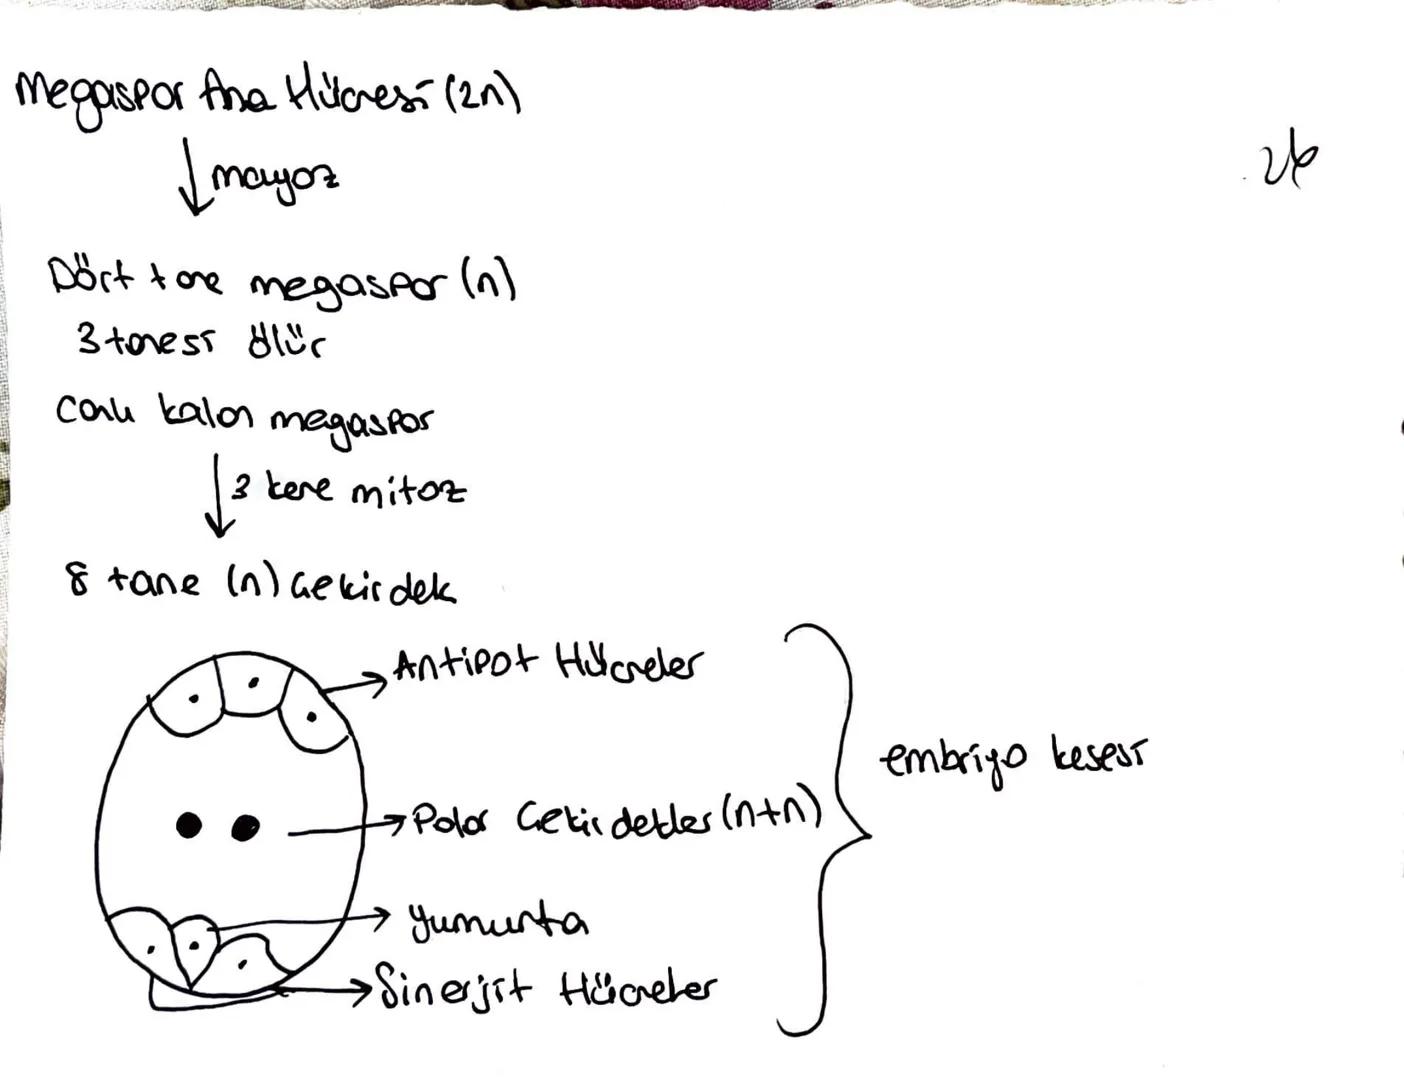 Megaspor Ana Hücresi (2n)
mayoz
Dört tane megaspor (n)
3 tanesi ölür
Canlı kalan megaspor
3 kere mitoz
8 tane (n) Çekirdek
Antipot Hücreler
Polar Çekirdekler (n+n)
embriyo kesesi
yumurta
Sinerjit Hücreler